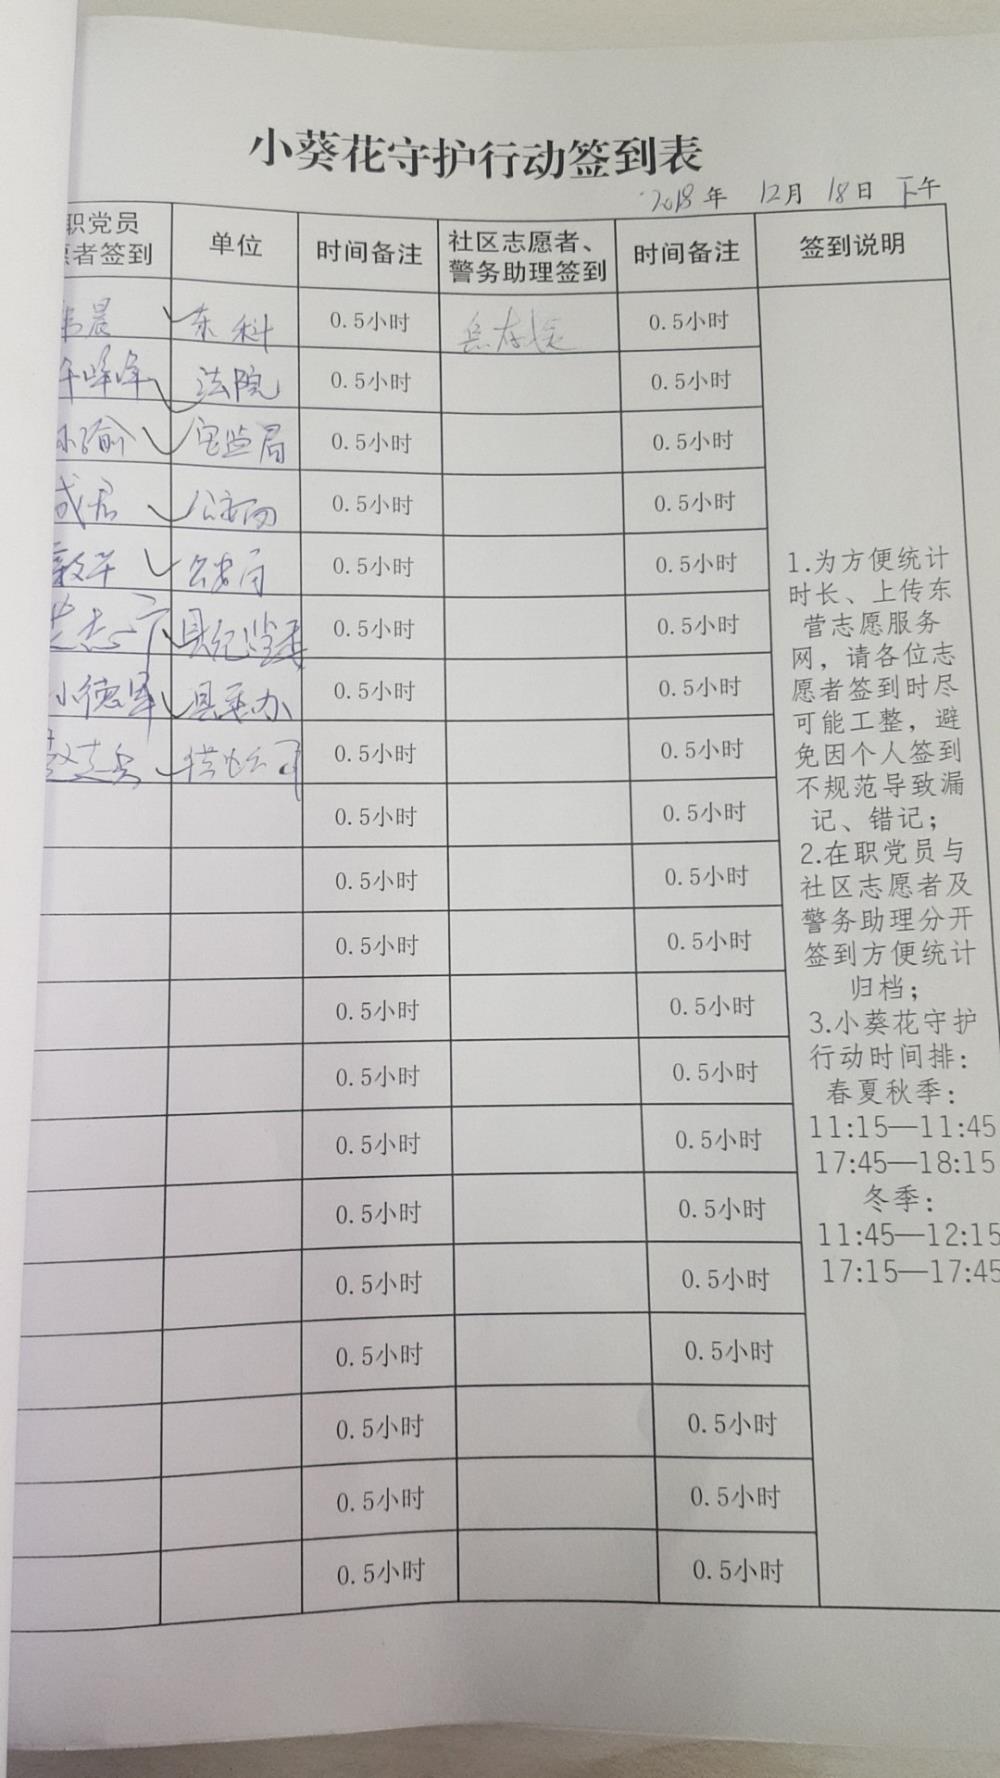 小葵花守护行动签到表
2018年 12月 18日 下午
职党员 单位 时间备注 社区志愿者、 时间备注 签到说明
者签到 警务助理签到
晨 东科 0.5小时 0.5小时
峰峰 法院 0.5小时 0.5小时
瑜 安监局 0.5小时 0.5小时
成君 公安局 0.5小时 0.5小时
公安局 0.5小时 0.5小时
志 县纪监委 0.5小时 0.5小时
小德军 县委办 0.5小时 0.5小时
0.5小时 0.5小时
0.5小时 0.5小时
0.5小时 0.5小时
0.5小时 0.5小时
0.5小时 0.5小时
0.5小时 0.5小时
0.5小时 0.5小时
0.5小时 0.5小时
0.5小时 0.5小时
0.5小时 0.5小时
0.5小时 0.5小时
0.5小时 0.5小时
0.5小时 0.5小时
1.为方便统计
时长、上传东
营志愿服务
网，请各位志
愿者签到时尽
可能工整，避
免因个人签到
不规范导致漏
记、错记；
2.在职党员与
社区志愿者及
警务助理分开
签到方便统计
归档；
3.小葵花守护
行动时间排：
春夏秋季：
11:15—11:45
17:45—18:15
冬季：
11:45—12:15
17:15—17:45